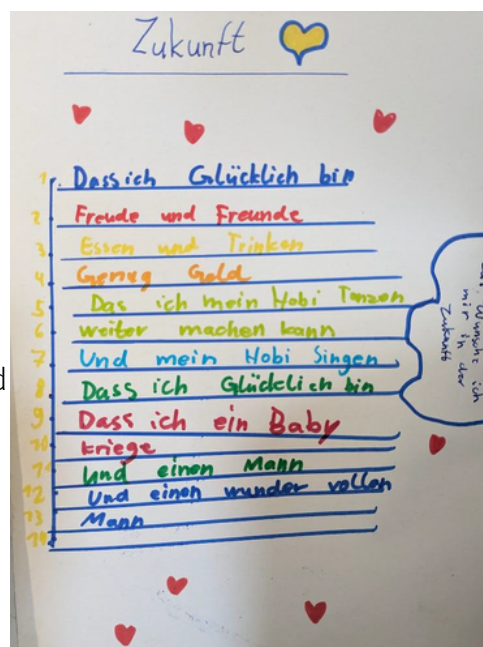 Zukunft
1. Dass ich Glücklich bin
2 Freude und Freunde
3 Essen und Trinken
4 Genug Geld
5 Das ich mein Hobi Tanzen
6 weiter machen kann
7 Und mein Hobi Singen
8 Dass ich Glücklich bin
9 Dass ich ein Baby
10 kriege
11 Und einen Mann
12 Und einen wunder vollen
13 Mann
14
wünsche ich
mir in der
Zukunft
d